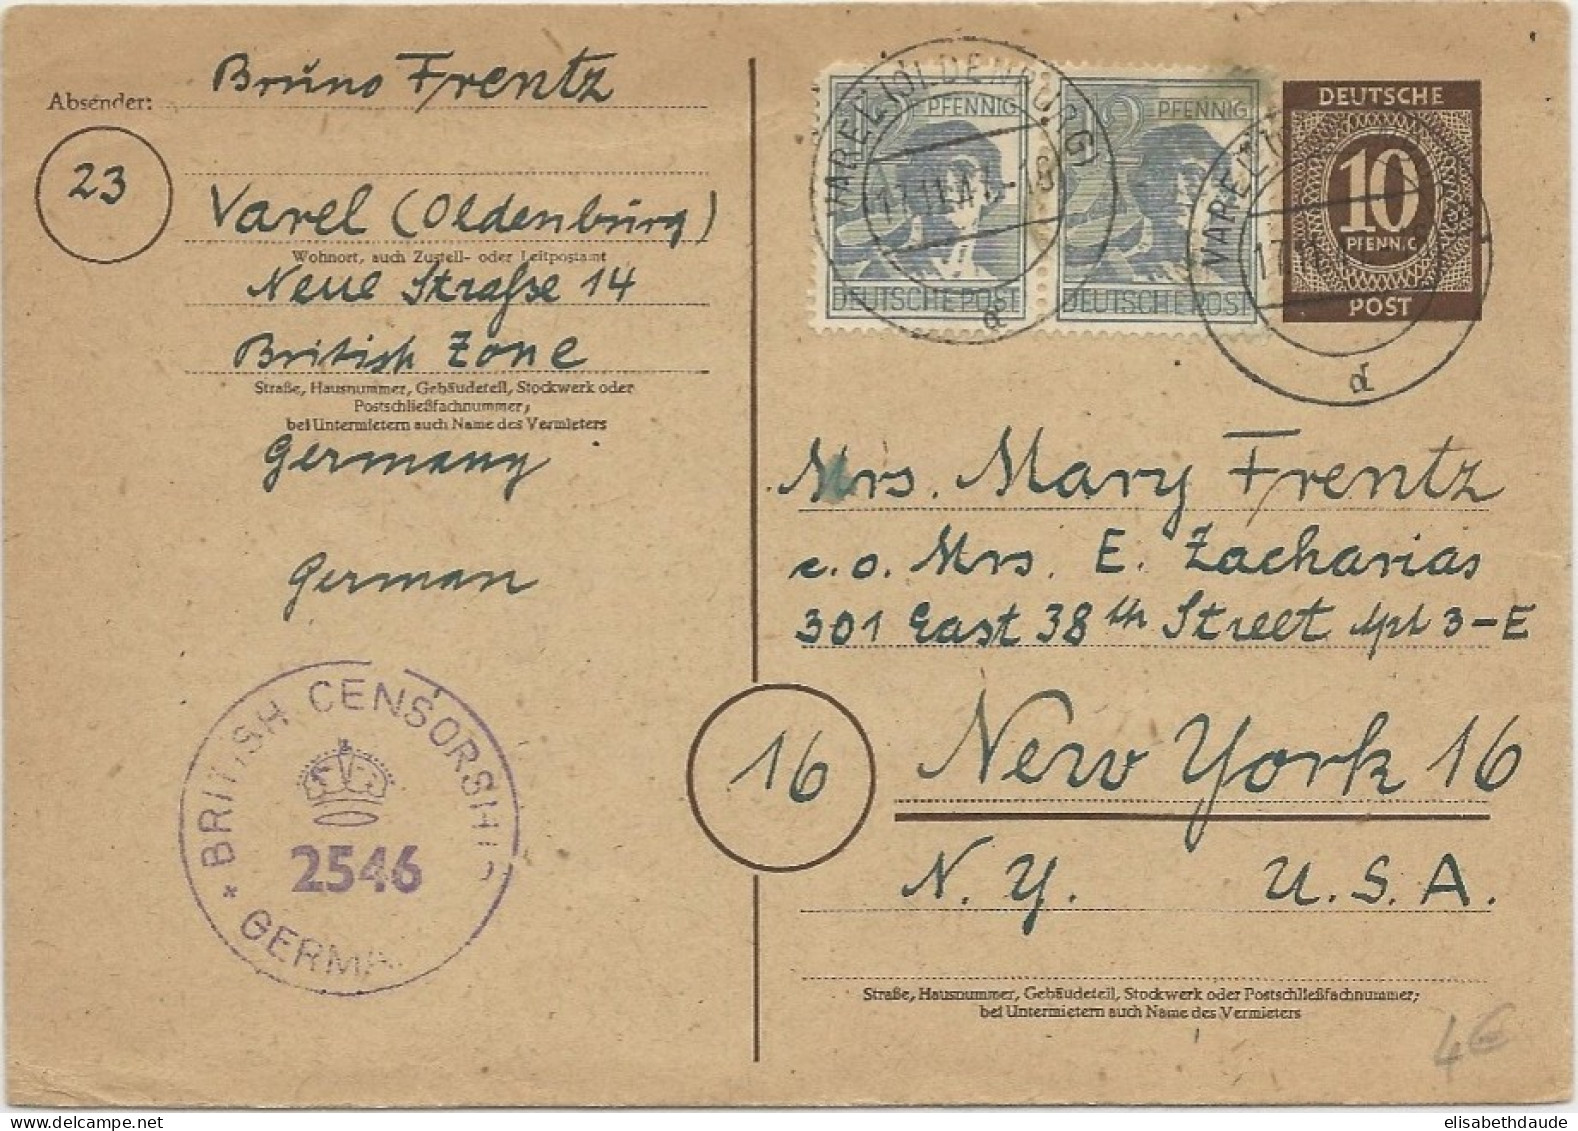 Absender:
Bruno Frentz
23
Varel (Oldenburg)
Wohnort, auch Zustell- oder Leitpostamt
Neue Straße 14
British Zone
Straße, Hausnummer, Gebäudeteil, Stockwerk oder
Postschließfachnummer;
bei Untermietern auch Name des Vermieters
Germany
German
BRITISH CENSORSHIP
2546
* GERMA
VAREL (OLDENBURG)
17.11.47.-18
d
12 PFENNIG
DEUTSCHE POST
12 PFENNIG
DEUTSCHE POST
VAREL (
17
d
DEUTSCHE
10
PFENNIG
POST
Mrs. Mary Frentz
c.o. Mrs. E. Zacharias
301 East 38th Street Apt 3-E
16
New York 16
N.Y. U.S.A.
Straße, Hausnummer, Gebäudeteil, Stockwerk oder Postschließfachnummer;
bei Untermietern auch Name des Vermieters
4€
elisabethdaude